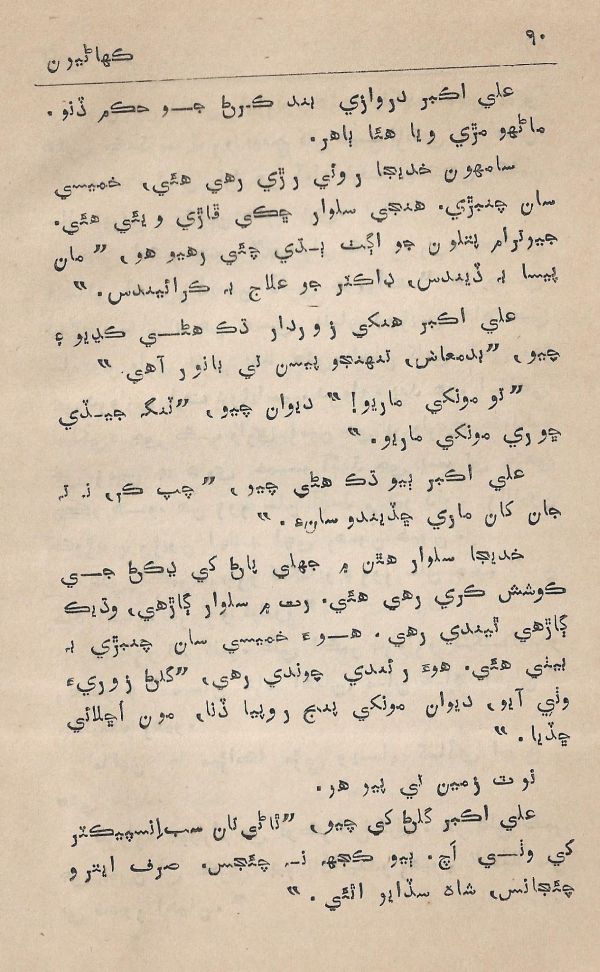 ۹۰
ڪهاڻيون
علي اڪبر دروازي بند ڪرڻ جو حڪم ڏنو.
ماڻهو مڙي ويا هئا ٻاهر.
سامهون خديجا روئي رڙي رهي هئي، خميسي
سان چنبڙي. هنجي سلوار ڇڪي ڦاڙي ويئي هئي.
جيوٽرام پتلون جو اڳٽ ٻڌي چئي رهيو هو، ”مان
پيسا به ڏيندس، ڊاڪٽر جو علاج به ڪرائيندس.“
علي اڪبر هنکي زوردار ڌڪ هڻي ڪڍيو ۽
چيو، ”بدمعاش، تنهنجو پيسن تي ٻانور آهي.“
”تو مونکي ماريو!“ ديوان چيو، ”ٽنگه جيڏي
ڇوري مونکي ماريو.“
علي اڪبر ٻيو ڌڪ هڻي چيو، ”چپ ڪر، نه ته
جان کان ماري ڇڏيندو سانءِ.“
خديجا سلوار هٿن ۾ جهلي پاڻ کي ڍڪڻ جي
ڪوشش ڪري رهي هئي. رت ۾ سلوار ڳاڙهي، وڌيڪ
ڳاڙهي ٿيندي رهي. هوءَ خميسي سان چنبڙي به
بيٺي هئي. هوءَ رئندي چوندي رهي، ”گلڻ زوريءَ
وٺي آيو، ديوان مونکي پنج روپيا ڏنا، مون اُڇلائي
ڇڏيا.“
نوٽ زمين تي پيو هو.
علي اڪبر گلڻ کي چيو، ”ٿاڻي تان سب انسپيڪٽر
کي وٺي اَچ. ٻيو ڪجهه نه چئجس. صرف ايترو
چئجانس، شاه سڏايو اٿئي.“